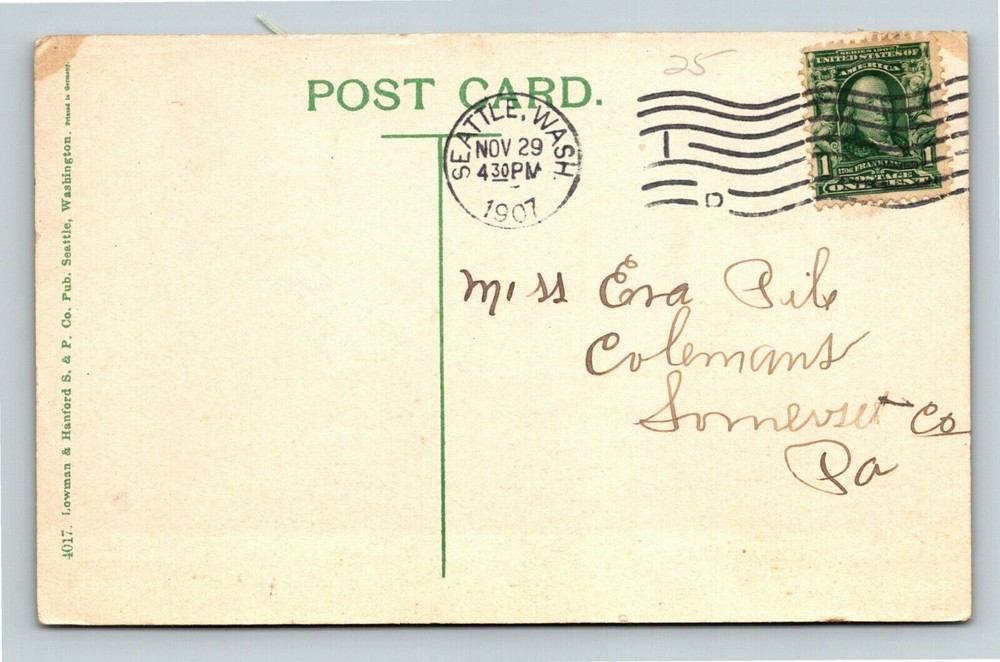 4017. Lowman & Hanford S. & P. Co. Pub. Seattle, Washington. Printed in Germany.
POST CARD.
SEATTLE, WASH.
NOV 29
430PM
1907
25
1
D
SERIES 1902
UNITED STATES OF
AMERICA
1706 FRANKLIN
1 1
POSTAGE
ONE CENT
Miss Eva Pile
Colemans
Somerset Co
Pa